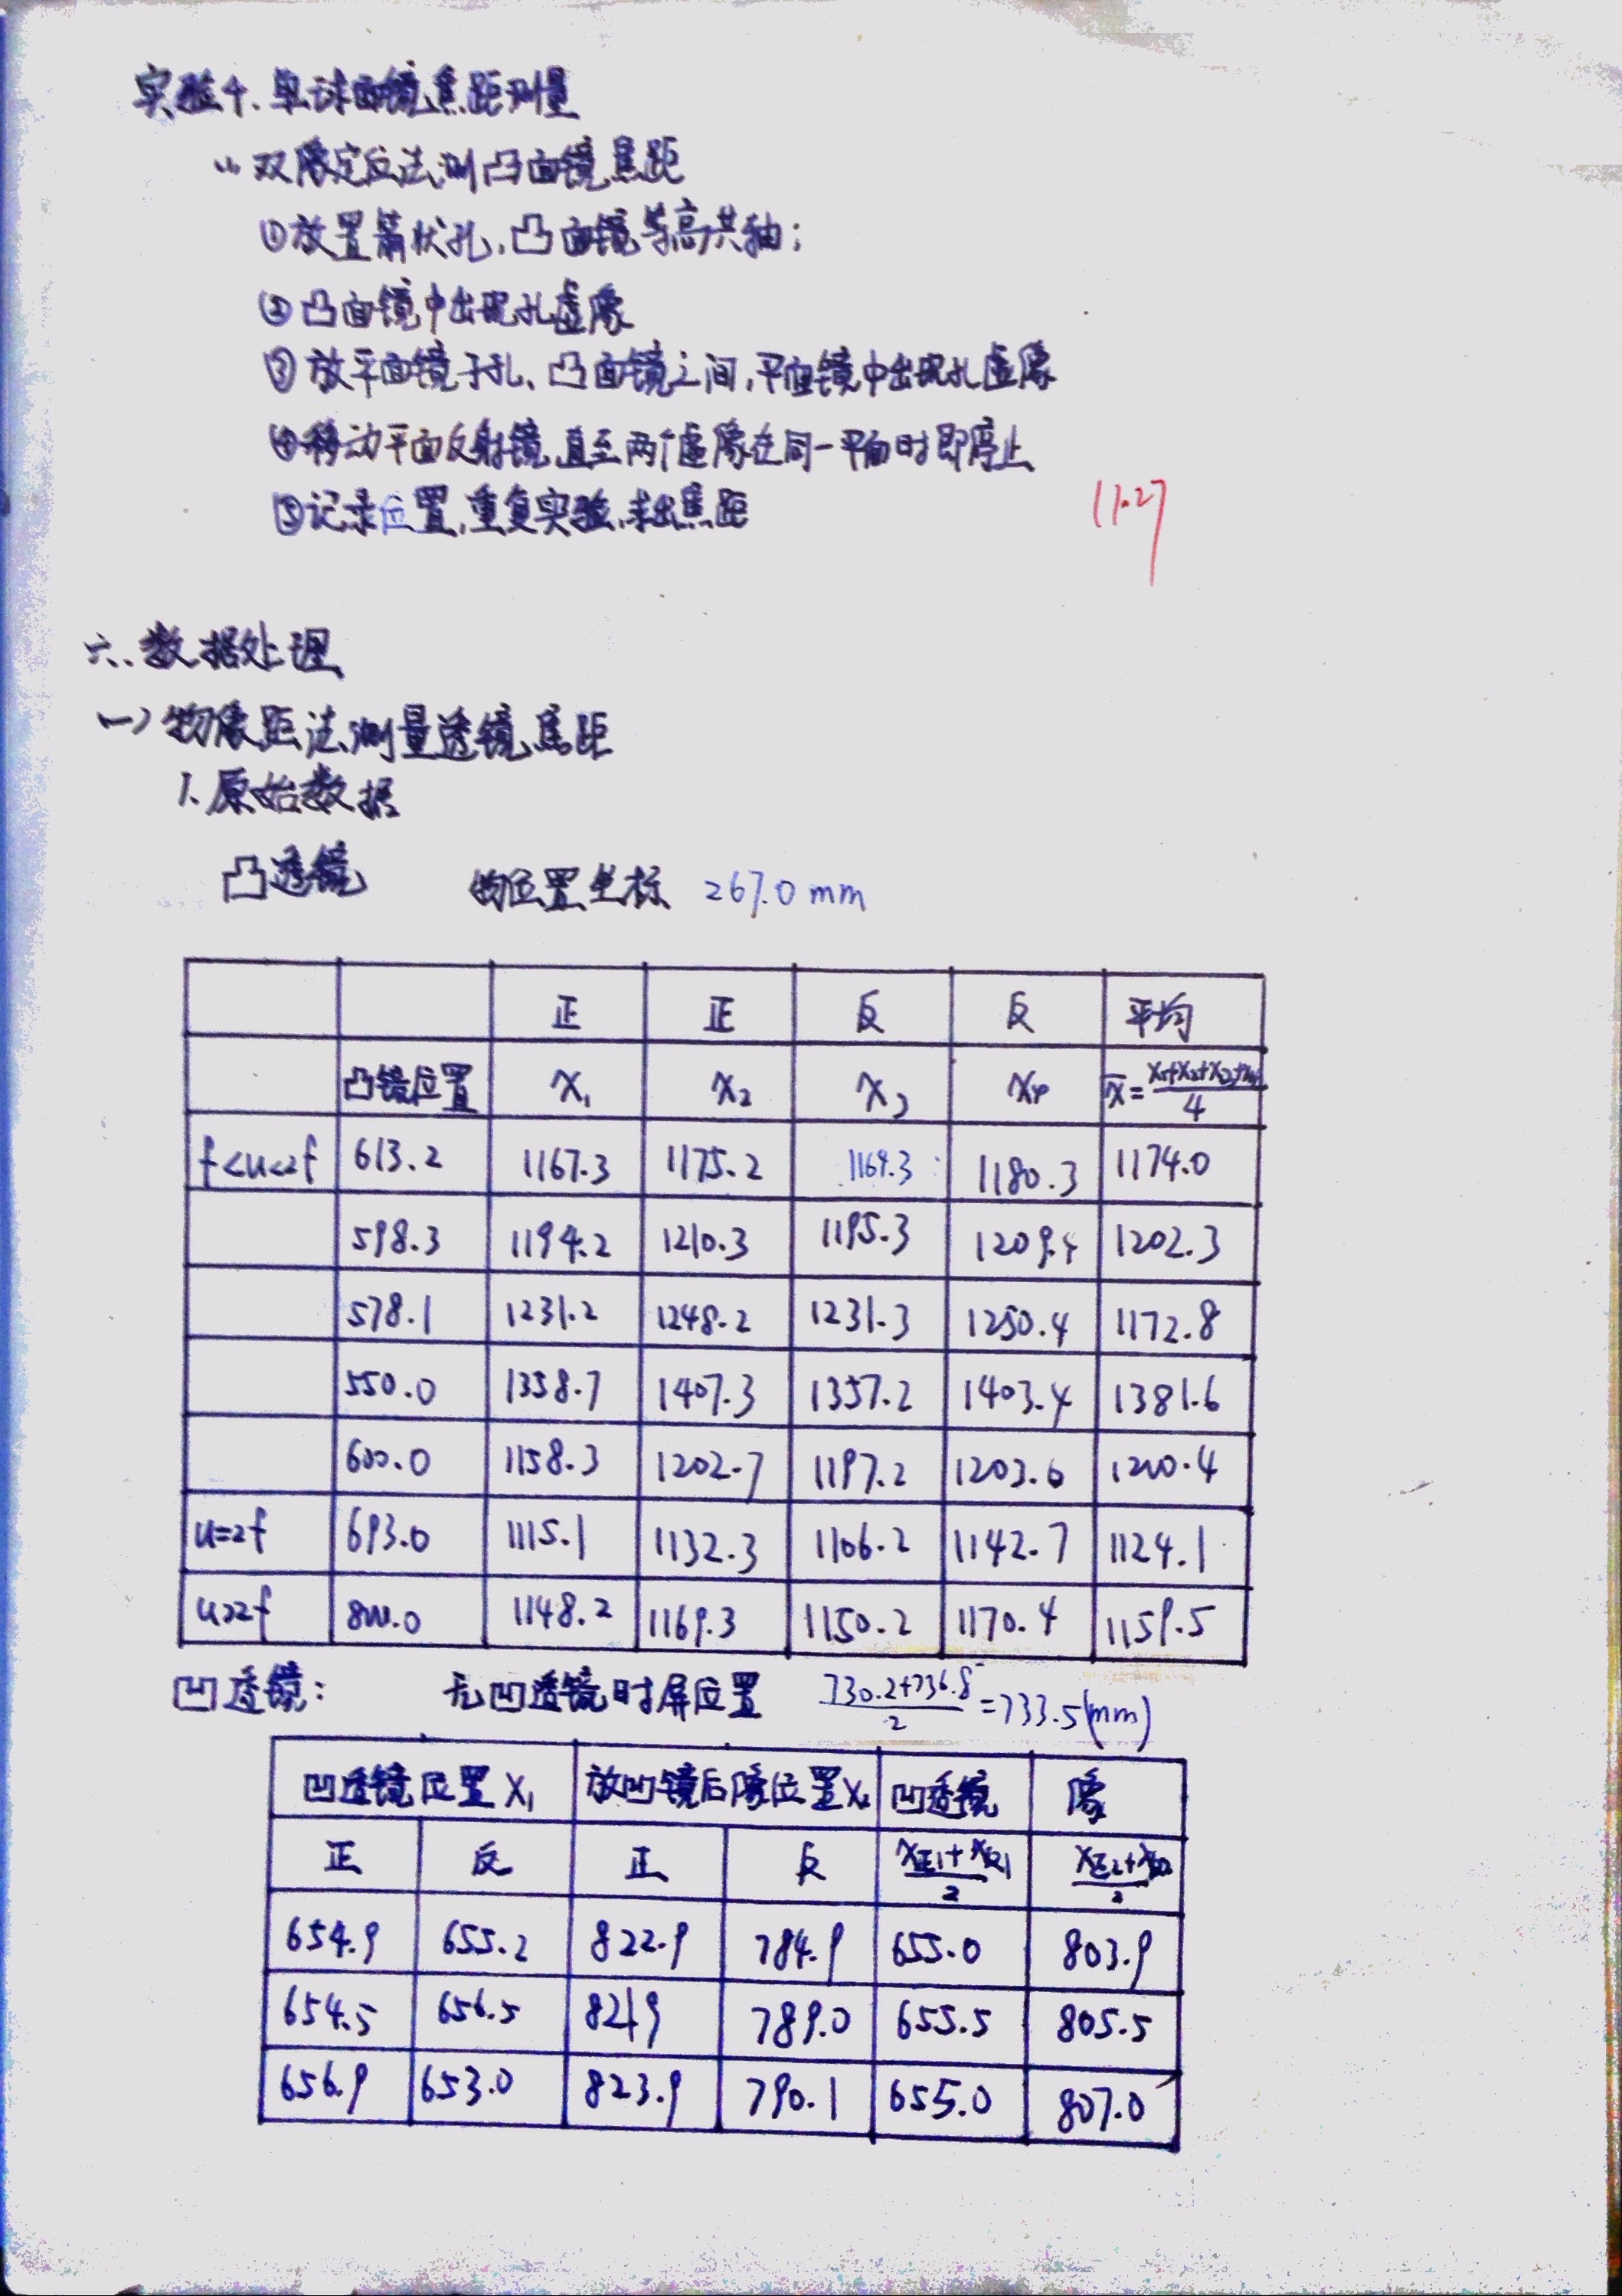 实验4.单球面镜焦距测量
(1)双像定位法测凸面镜焦距
①放置箭状孔,凸面镜等高共轴;
②凸面镜中出现孔虚像
③放平面镜于孔、凸面镜之间,平面镜中出现孔虚像
④移动平面反射镜,直至两个虚像在同一平面时即停止
⑤记录位置,重复实验,求出焦距
11.27
六、数据处理
一)物像距法测量透镜焦距
1.原始数据
凸透镜 物位置坐标 267.0 mm
正 正 反 反 平均
凸镜位置 X₁ X₂ X₃ X₄ X̄=(X₁+X₂+X₃+X₄)/4
f<u<2f 613.2 1167.3 1175.2 1169.3 1180.3 1174.0
598.3 1194.2 1210.3 1195.3 1209.4 1202.3
578.1 1231.2 1248.2 1231.3 1250.4 1172.8
550.0 1358.7 1407.3 1357.2 1403.4 1381.6
600.0 1158.3 1202.7 1197.2 1203.6 1200.4
u=2f 693.0 1115.1 1132.3 1106.2 1142.7 1124.1
u>2f 800.0 1148.2 1169.3 1150.2 1170.4 1159.5
凹透镜: 无凹透镜时屏位置 (730.2+736.8)/2=733.5(mm)
凹透镜位置X₁ 放凹镜后像位置X₂ 凹透镜 像
正 反 正 反 (X正1+X反1)/2 (X正2+X反2)/2
654.9 655.2 822.9 784.9 655.0 803.9
654.5 656.5 821.9 789.0 655.5 805.5
656.9 653.0 823.9 790.1 655.0 807.0